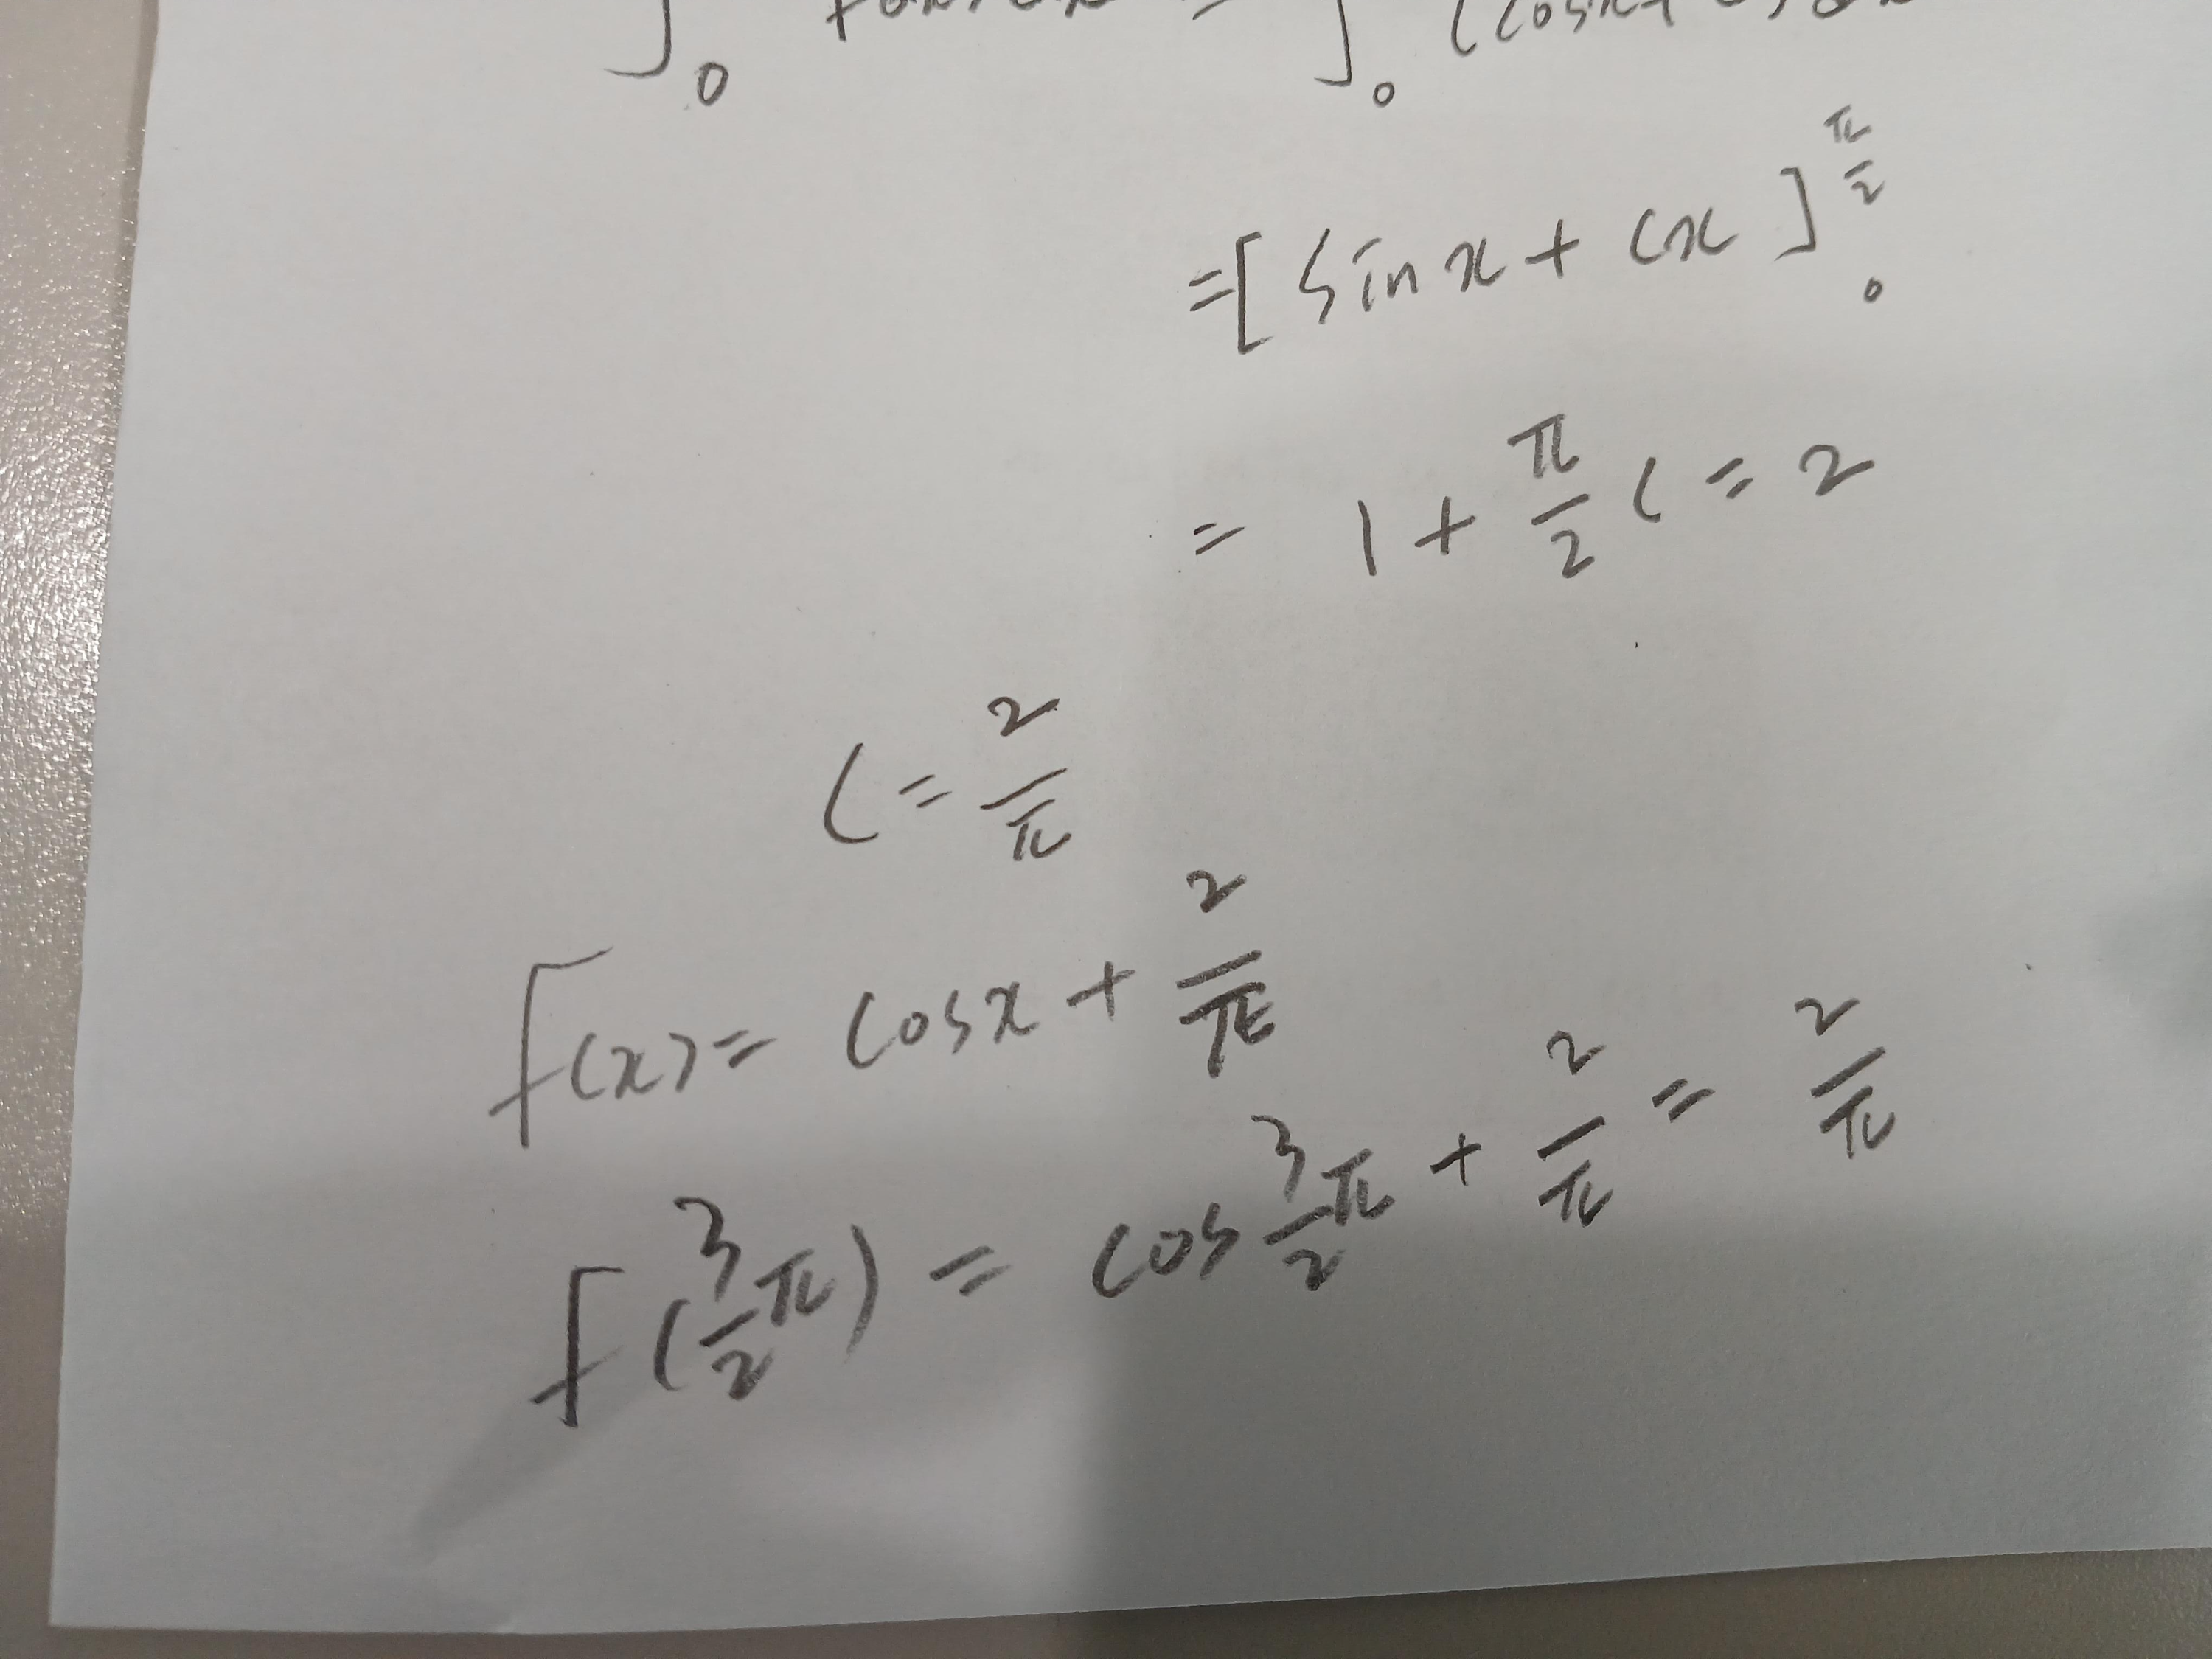 ∫₀ = ∫₀ (cosx+
=[sinx+cx]₀^(π/2)
= 1 + π/2 c = 2
c = 2/π
f(x) = cosx + 2/π
f(3/2 π) = cos 3/2 π + 2/π = 2/π